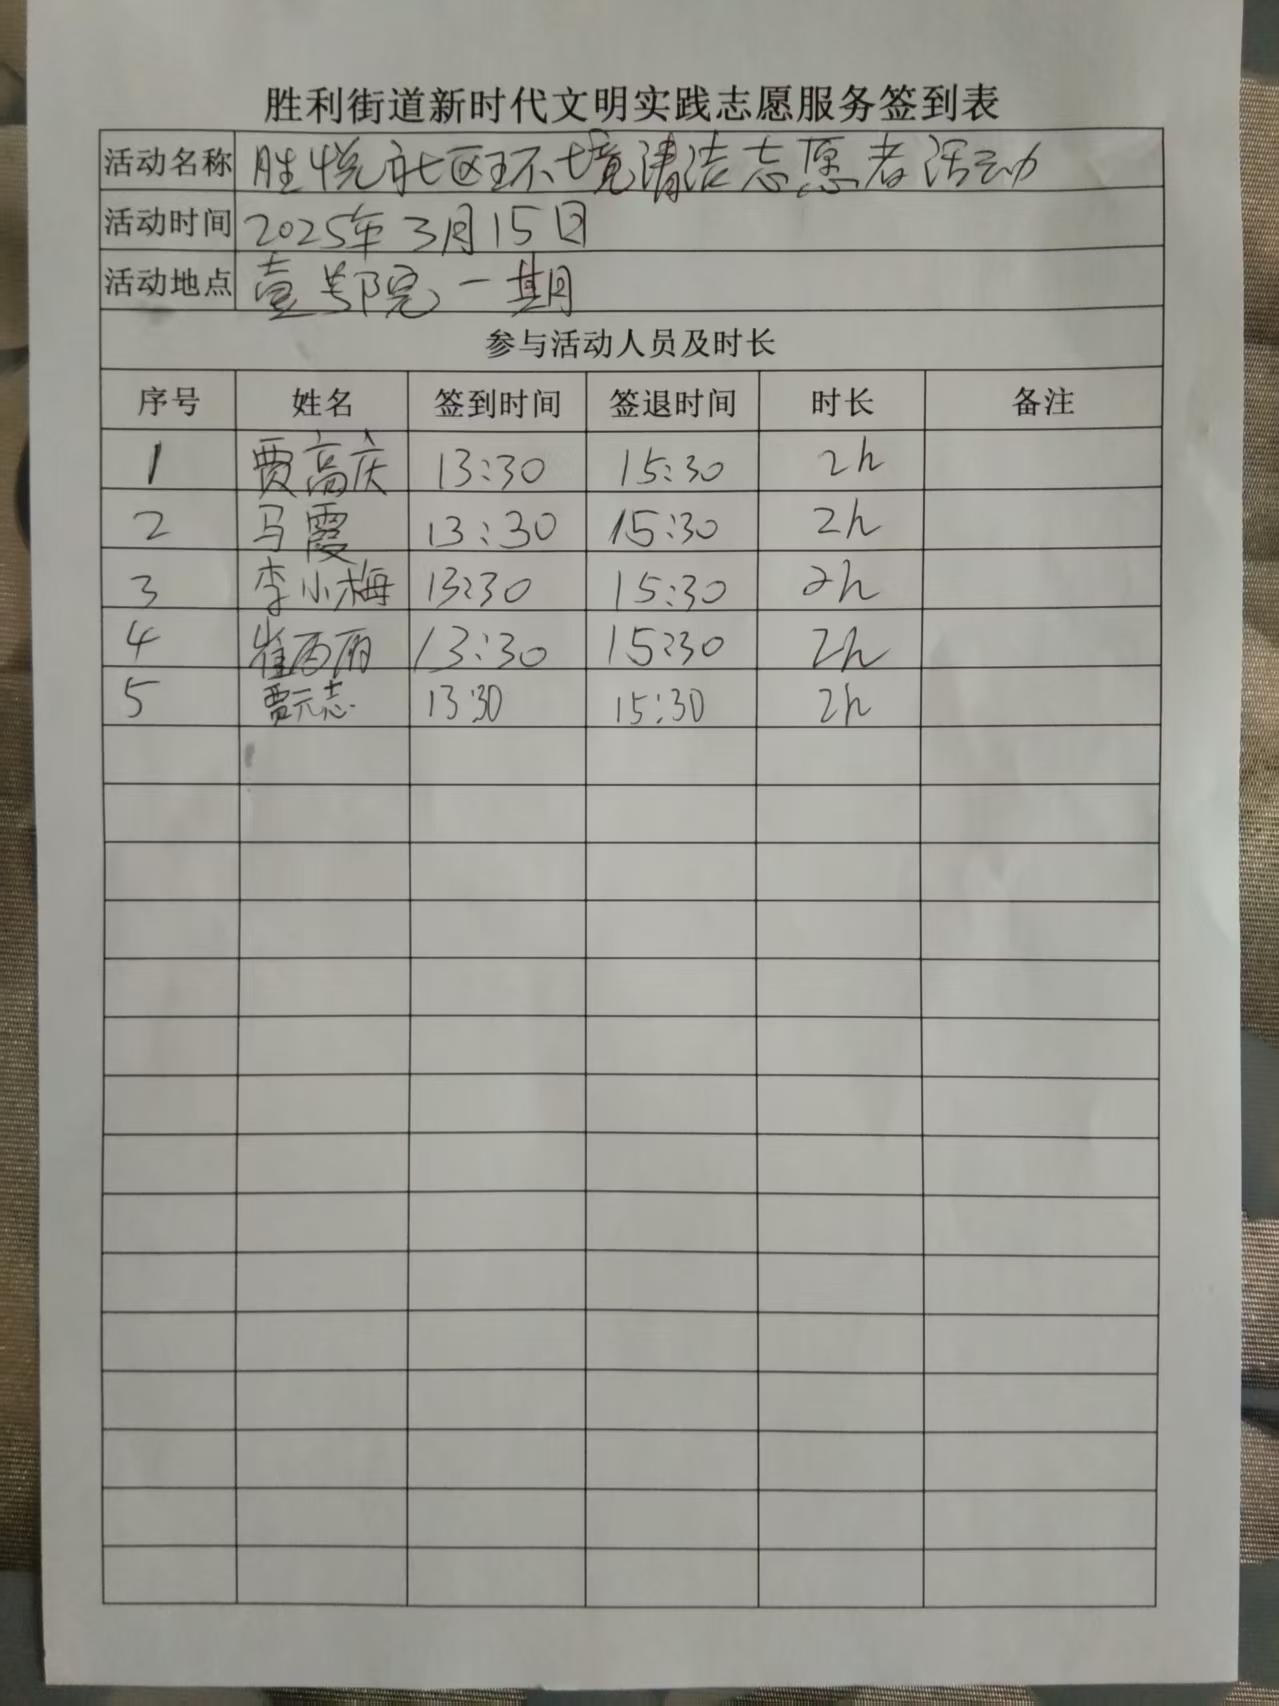 胜利街道新时代文明实践志愿服务签到表
活动名称 胜悦社区环境清洁志愿者活动
活动时间 2025年3月15日
活动地点 壹号院一期
参与活动人员及时长
序号 姓名 签到时间 签退时间 时长 备注
1 贾高庆 13:30 15:30 2h
2 马霞 13:30 15:30 2h
3 李小梅 13:30 15:30 2h
4 崔西丽 13:30 15:30 2h
5 贾元志 13:30 15:30 2h